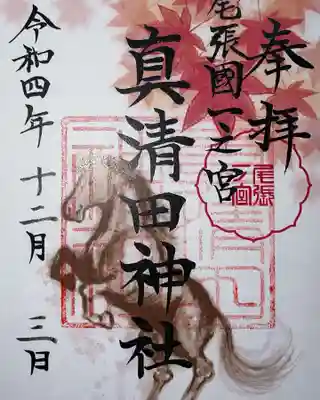 奉拝
尾張國一之宮
真清田神社
令和四年 十二月 三日